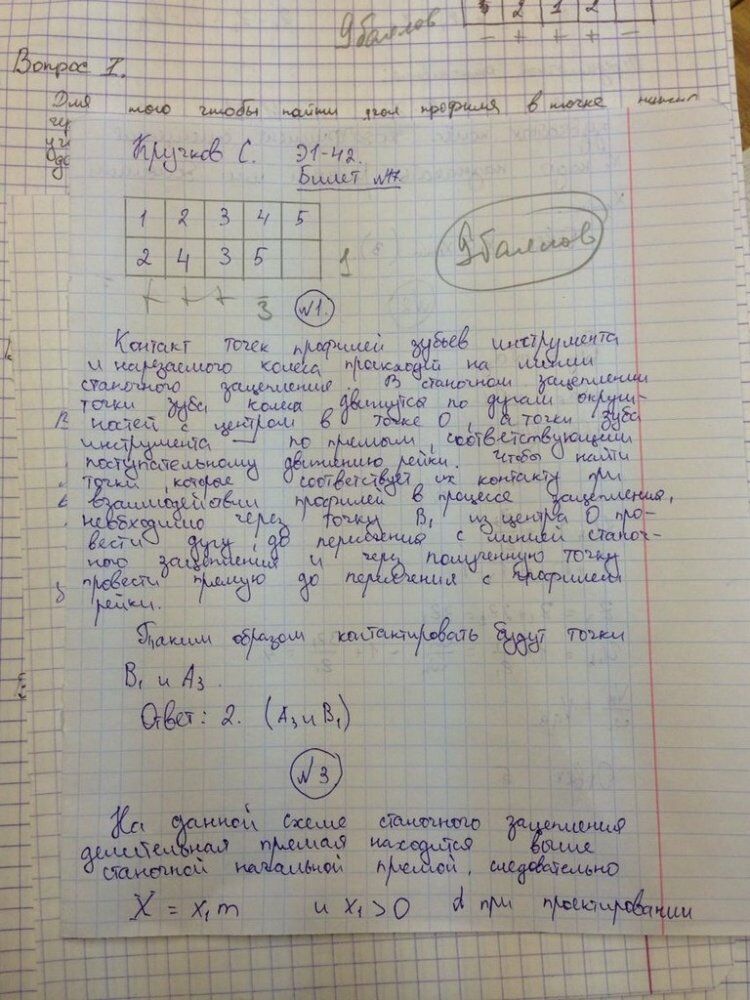 9 баллов
5 2 1 2
- + + + -
Вопрос I.
Для того чтобы найти угол профиля в точке
Кручков С. Э1-42.
Билет №17.
1 2 3 4 5
2 4 3 5
+ + + 3 1
9 баллов
№1.
Контакт точек профилей зубьев инструмента
и нарезаемого колеса происходит на линии
станочного зацепления. В станочном зацеплении
точки зуба колеса движутся по дугам окруж-
ностей с центром в точке О, а точки зуба
инструмента — по прямым, соответствующим
поступательному движению рейки. Чтобы найти
точки, которое соответствует их контакту при
взаимодействии профилей в процессе зацепления,
необходимо через точку B₁ из центра О про-
вести дугу до пересечения с линией станоч-
ного зацепления и через полученную точку
провести прямую до пересечения с профилем
рейки.
Таким образом контактировать будут точки
B₁ и A₃.
Ответ: 2. (A₃ и B₁)
№3
На данной схеме станочного зацепления
делительная прямая находится выше
станочной начальной прямой, следовательно
X = x₁m и x₁>0 при проектировании